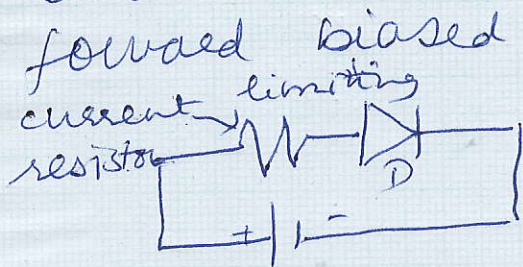 forward biased
current limiting
resistor
D
+ -